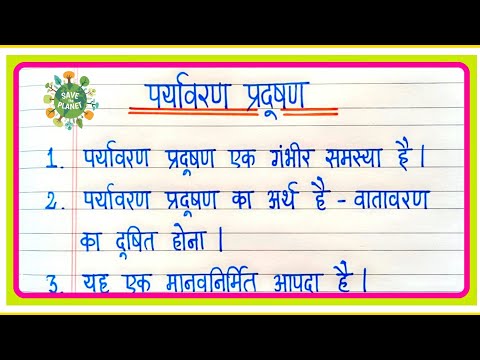 SAVE
PLANET
पर्यावरण प्रदूषण
1. पर्यावरण प्रदूषण एक गंभीर समस्या है।
2. पर्यावरण प्रदूषण का अर्थ है - वातावरण
का दूषित होना।
3. यह एक मानवनिर्मित आपदा है।